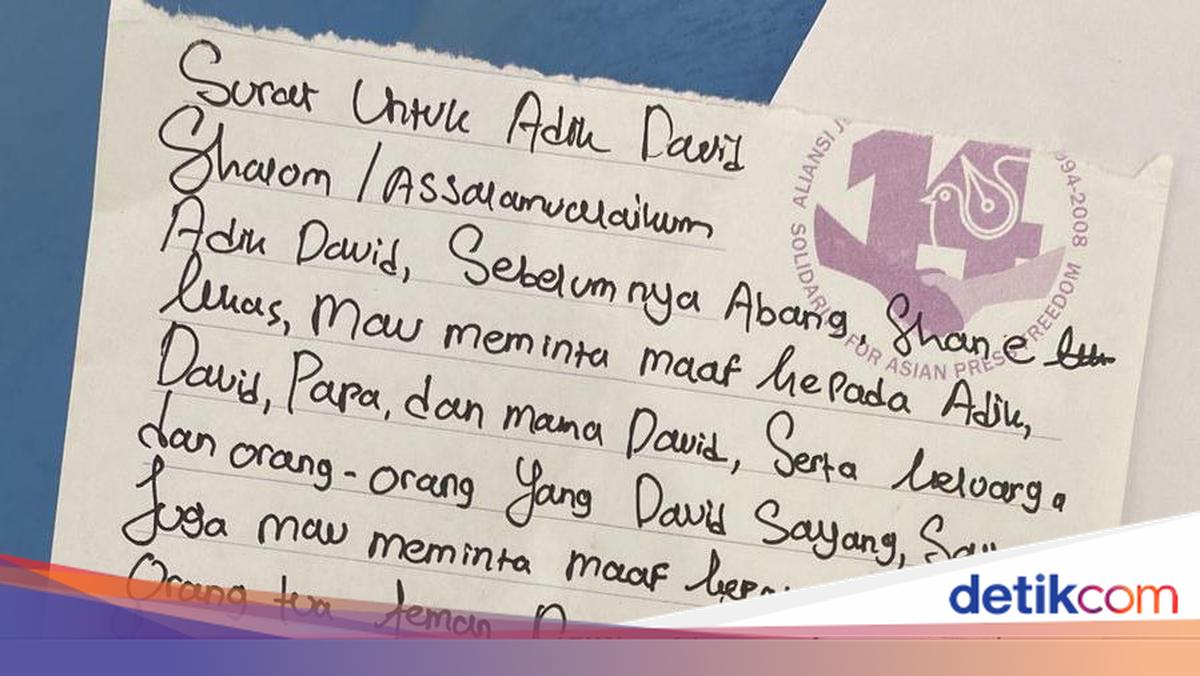 Surat Untuk Adik David
Shalom / Assalamualaikum
Adik David, Sebelumnya Abang, Shane
lukas, Mau meminta maaf kepada Adik,
David, Papa, dan mama David, Serta keluarga
dan orang-orang Yang David Sayang,
Juga mau meminta maaf
Orang tua teman
ALIANSI
1994-2008
SOLIDARI FOR ASIAN PRESS FREEDOM
14
detikcom